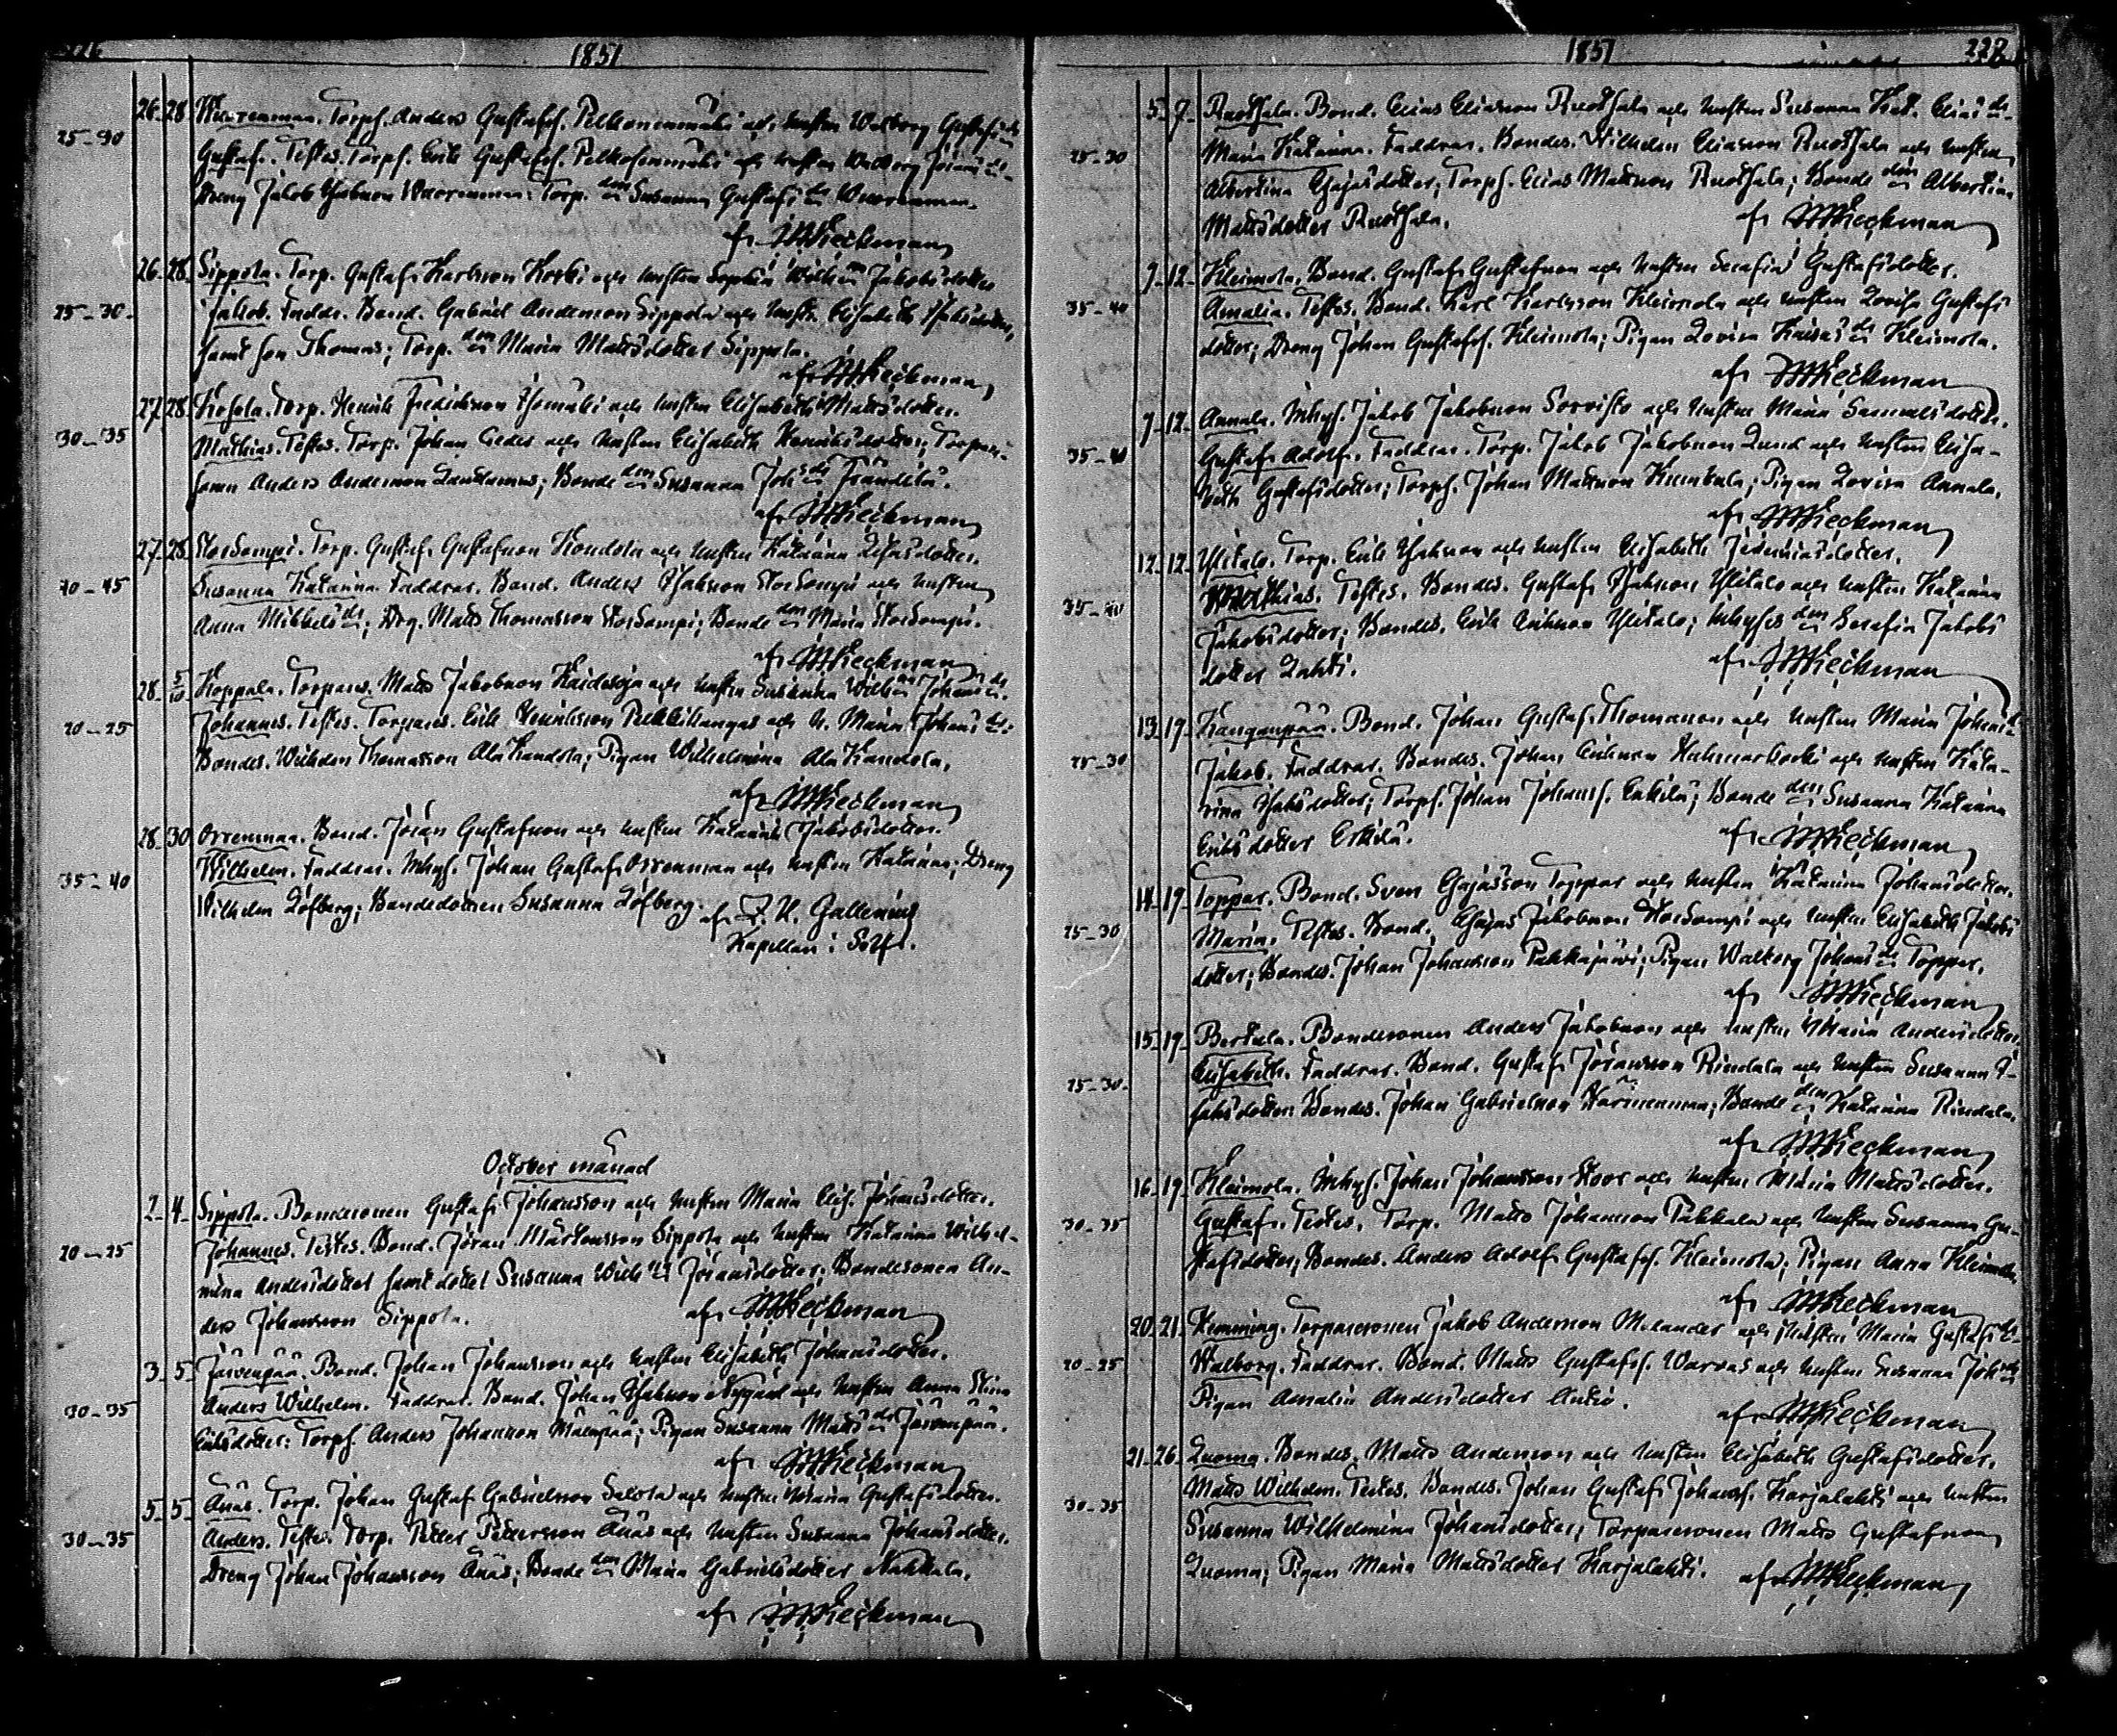 1851
26 28 Wuorenmaa. Torps. Anders Gustafss. Pelkonenmäki och hustru Walborg Gustafsdr
25-30 Gustaf. Testes. Torps. Erik Gustafss. Pelkosenmäki och hustru Walborg Jörans dr
Dreng Jakob Jakobson Wuorenmaa; Torp. don Susanna Gustafs dr Wuorenmaa.
af
26 28 Sippola. Torp. Gustaf Karlsson Koski och hustru Sophia Wilh:na Jakobsdotter
25-30 Jakob. Faddr. Bond. Gabriel Anderson Sippola och hustr. Elisabeth Isaksdotter,
samt son Thomas; Torp. don Maria Mattsdotter Sippola.
af
27 28 Kosola. Torp. Henrik Fredrikson Isomäki och hustru Elisabeth Mattsdotter.
30-35 Mathias. Testes. Torp. Johan Ceder och hustru Elisabeth Henriksdotter; Torpare-
sonen Anders Anderson Lauttamus; Bonde don Susanna Joh:s dr Frändilä.
af
27 28 Storsompi. Torp. Gustaf Gustafsson Kondola och hustru Katarina Elisasdotter.
40-45 Susanna Katarina. Faddrar. Bond. Anders Isakson Storsompi och hustru
Anna Mikkels dr; Drg. Matts Thomasson Storsompi; Bonde don Maria Storsompi.
af
28 5/10 Koppala. Torpares. Matts Jakobson Kaidesoja och hustru Susanna Wilh:na Johans dr.
20-25 Johannes. Testes. Torpares. Erik Henriksson Pelkkikangas och h. Maria Johans dr.
Bondes. Wilhelm Thomasson Ala Kandola; Pigan Wilhelmina Ala Kandola.
af
28 30 Orrenmaa. Bond. Jöran Gustafsson och hustru Katarina Jakobsdotter.
35-40 Wilhelm. Faddrar. Inhys. Johan Gustaf Orrenmaa och hustru Katarina; Dreng
Wilhelm Löfberg; Bondedottren Susanna Löfberg. af
Kapellan i Solf.
October månad
2 4 Sippola. Bondesonen Gustaf Johansson och hustru Maria Elis. Johansdotter.
20-25 Johannes. Testes. Bond. Jöran Mårtensson Sippola och hustru Katarina Wilhel-
mina Andersdotter samt dotter Susanna Wilh:na Jöransdotter; Bondesonen An-
ders Johansson Sippola. af
3 5 Järvenpää. Bond. Johan Johansson och hustru Elisabeth Johansdotter.
30-35 Anders Wilhelm. Faddrar. Bond. Johan Isakson Nygård och hustru Anna Stina
Eriksdotter; Torps. Anders Johansson Mäenpää; Pigan Susanna Matts dr Järvenpää.
af
5 5 Anäs. Torp. Johan Gustaf Gabrielsson Salola och hustru Maria Gustafsdotter.
30-35 Anders. Testes. Torp. Petter Pettersson Anäs och hustru Susanna Johansdotter.
Dreng Johan Johansson Anäs; Bonde don Maria Gabrielsdotter Nahkala.
af
1851
5 7 Ruotsala. Bond. Elias Eliasson Ruotsala och hustru Susanna Kat. Elias dr.
25-30 Maria Katarina. Faddrar. Bondes. Wilhelm Eliasson Ruotsala och hustru
Albertina Esajasdotter; Torps. Elias Mattson Ruotsala; Bonde don Albertina
Mattsdotter Ruotsala. af
7 12 Kleimola. Bond. Gustaf Gustafsson och hustru Serafia Gustafsdotter.
35-40 Amalia. Testes. Bond. Karl Karlsson Kleimola och hustru Lovisa Gustafs-
dotter; Dreng Johan Gustafss. Kleimola; Pigan Lovisa Kaisas dr Kleimola.
af
7 12 Annala. Inhys. Jakob Jakobson Sorvisto och hustru Maria Samuelsdotter.
35-40 Gustaf Adolf. Faddrar. Torp. Jakob Jakobson Lund och hustru Elisa-
beth Gustafsdotter; Torps. Johan Mattson Kuntula; Pigan Lovisa Annala.
af
12 12 Ylitalo. Torp. Erik Isakson och hustru Elisabeth Jeremiasdotter.
35-40 Mathias. Testes. Bondes. Gustaf Isakson Ylitalo och hustru Katarina
Jakobsdotter; Bondes. Erik Erikson Ylitalo; Inhyses don Serafia Jakobs
dotter Lahti. af
13 19 Kangaspää. Bond. Johan Gustaf Thomasson och hustru Maria Johans dr.
25-30 Jakob. Faddrar. Bondes. Johan Erikson Hahmarkoski och hustru Kata-
rina Isaksdotter; Torps. Johan Johanss. Erkkilä; Bonde don Susanna Katarina
Eriksdotter Erkilä. af
14 19 Toppar. Bond. Sven Esajasson Toppar och hustru Katarina Johansdotter.
25-30 Maria. Testes. Bond. Esajas Jakobson Storsompi och hustru Elisabeth Jakobs
dotter; Bondes. Johan Johansson Pakkajärvi; Pigan Walborg Johans dr Toppar.
af
15 19 Pertula. Bondesonen Anders Jakobson och hustru Maria Andersdotter.
25-30 Elisabeth. Faddrar. Bond. Gustaf Jöransson Rindala och hustru Susanna I-
saksdotter; Bondes. Johan Gabrielson Karinenmaa; Bonde don Katarina Rindala.
af
16 19 Kleimola. Inhys. Johan Johansson Koor och hustru Maria Mattsdotter.
30-35 Gustaf. Testes. Torp. Matts Johansson Pakkala och hustru Susanna Gu-
stafsdotter; Bondes. Anders Adolf Gustafss. Kleimola; Pigan Anna Kleimola.
af
20 21 Hemming. Torparesonen Jakob Anderson Melander och hustru Maria Gustafs dr.
20-25 Walborg. Faddrar. Bond. Matts Gustafss. Warvas och hustru Susanna Joh:s dr
Pigan Amalia Andersdotter Antio.
af
21 26 Luoma. Bondes. Matts Anderson och hustru Elisabeth Gustafsdotter.
30-35 Matts Wilhelm. Testes. Bondes. Johan Gustaf Johanss. Karjalahti och hustru
Susanna Wilhelmina Johansdotter; Torparesonen Matts Gustafsson
Luoma; Pigan Maria Mattsdotter Karjalahti. af